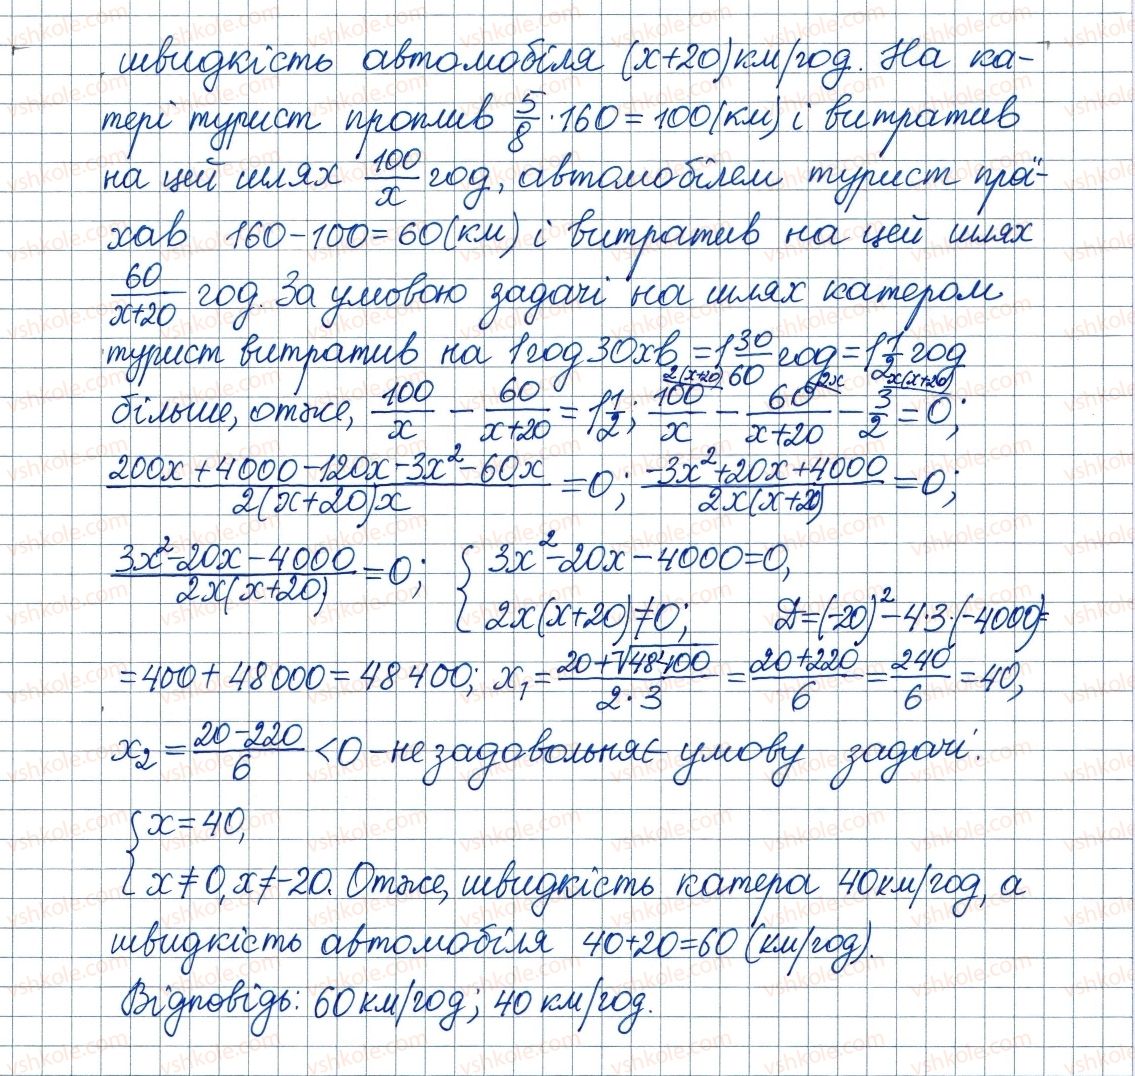 швидкість автомобіля (x+20) км/год. На ка-
тері турист проплив 5/8 · 160 = 100 (км) і витратив
на цей шлях 100/x год, автомобілем турист прої-
хав 160 - 100 = 60 (км) і витратив на цей шлях
60/(x+20) год. За умовою задачі на шлях катером
турист витратив на 1 год 30 хв = 1 30/60 год = 1 1/2 год
більше, отже, 100/x - 60/(x+20) = 1 1/2; 100/x ^(2(x+20) - 60/(x+20) ^(2x - 3/2 ^(x(x+20) = 0;
(200x + 4000 - 120x - 3x² - 60x)/(2(x+20)x) = 0; (-3x² + 20x + 4000)/(2x(x+20)) = 0;
(3x² - 20x - 4000)/(2x(x+20)) = 0; { 3x² - 20x - 4000 = 0,
2x(x+20) ≠ 0; Д = (-20)² - 4·3·(-4000) =
= 400 + 48000 = 48400; x₁ = (20 + √48400)/(2·3) = (20+220)/6 = 240/6 = 40,
x₂ = (20 - 220)/6 < 0 - не задовольняє умову задачі.
{ x = 40,
x ≠ 0, x ≠ -20. Отже, швидкість катера 40 км/год, а
швидкість автомобіля 40 + 20 = 60 (км/год).
Відповідь: 60 км/год; 40 км/год.